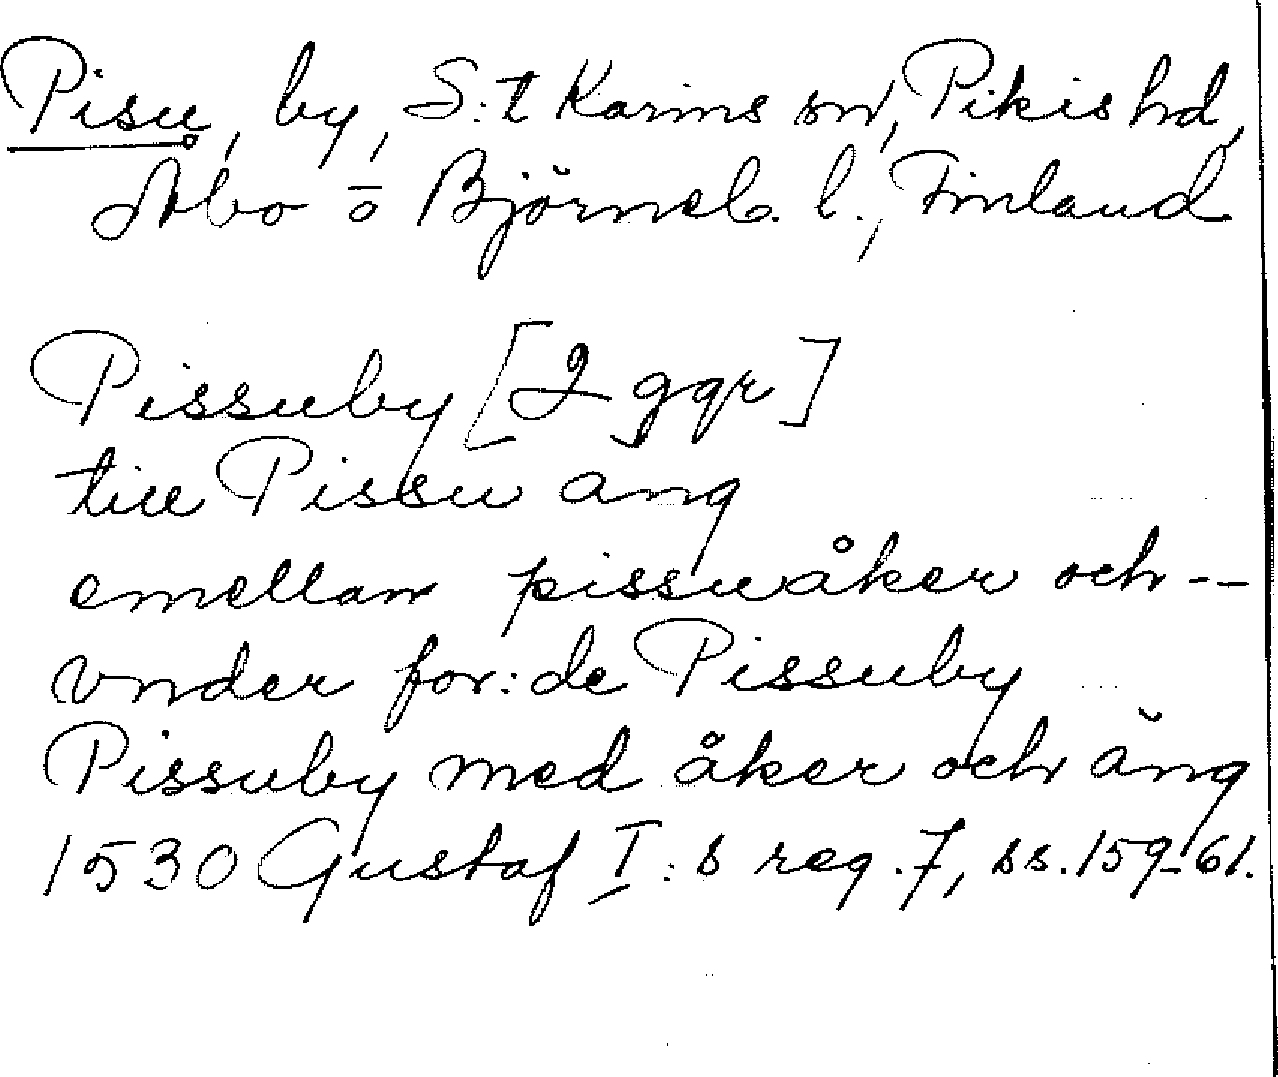 Pisu, by, S:t Karins sn, Pikis hd,
Åbo o Björneb. l., Finland
Pissuby [2 ggr]
till Pissu ang
emellan pissuåker och --
vnder for:de Pissuby
Pissuby med åker och äng
1530 Gustaf I:s reg. 7, ss. 159-61.